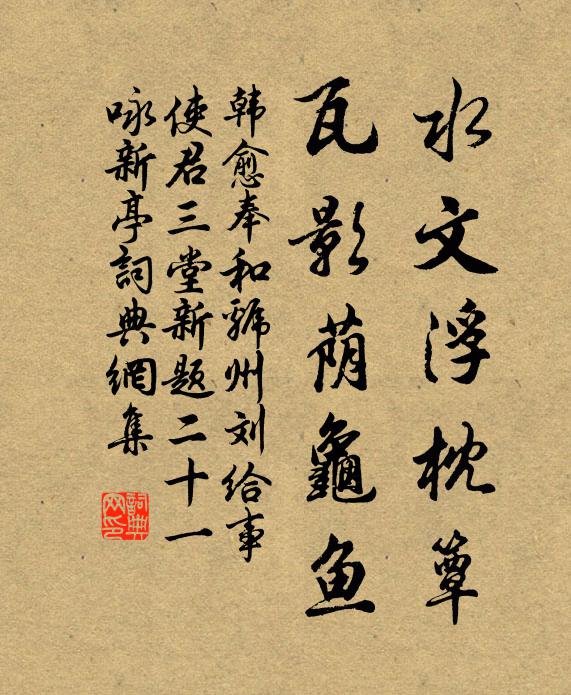 水文浮枕簟
瓦影荫龜鱼
韩愈奉和虢州刘给事
使君三堂新题二十一
咏新亭詞典網集
詞典
网印